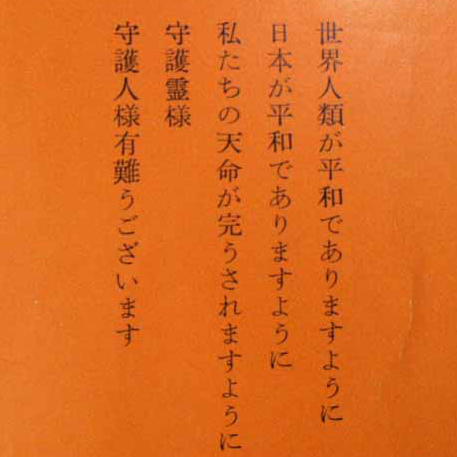 世界人類が平和でありますように
日本が平和でありますように
私たちの天命が完うされますように
守護霊様
守護人様有難うございます